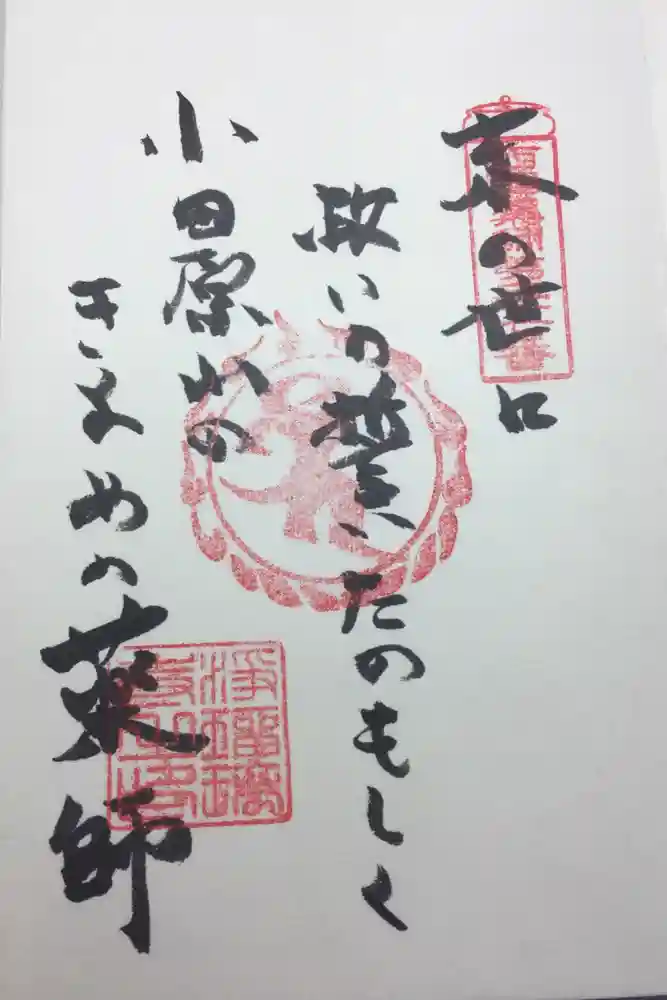 末の世に
救いの誓いたのもしく
小田原山の
きよめの薬師
浄瑠璃
寺之印